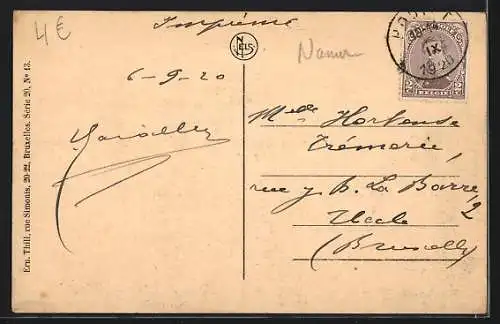 4€
Imprimé
NELS
Namur
IX
1920
BELGIE
6-9-20
Mlle Hortense
Trémerie,
rue J. B. La Barre, 2
Uccle
(Bruxelles)
Ern. Thill, rue Simonis, 20-22, Bruxelles. Série 20, Nº 13.